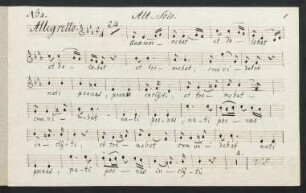 No 4. Alt-Solo.
Allegretto. 24
Quae moe- rebat et do- lebat
et do- lebat et tre- mebat, cum vi- debat
nati poenas, poenas inclyti, et tre- mebat
cum vi- debat nati poenas, nati poe- nas
in- clyti, et tre- mebat cum vi- debat nati
poenas, nati poe- nas in- clyti